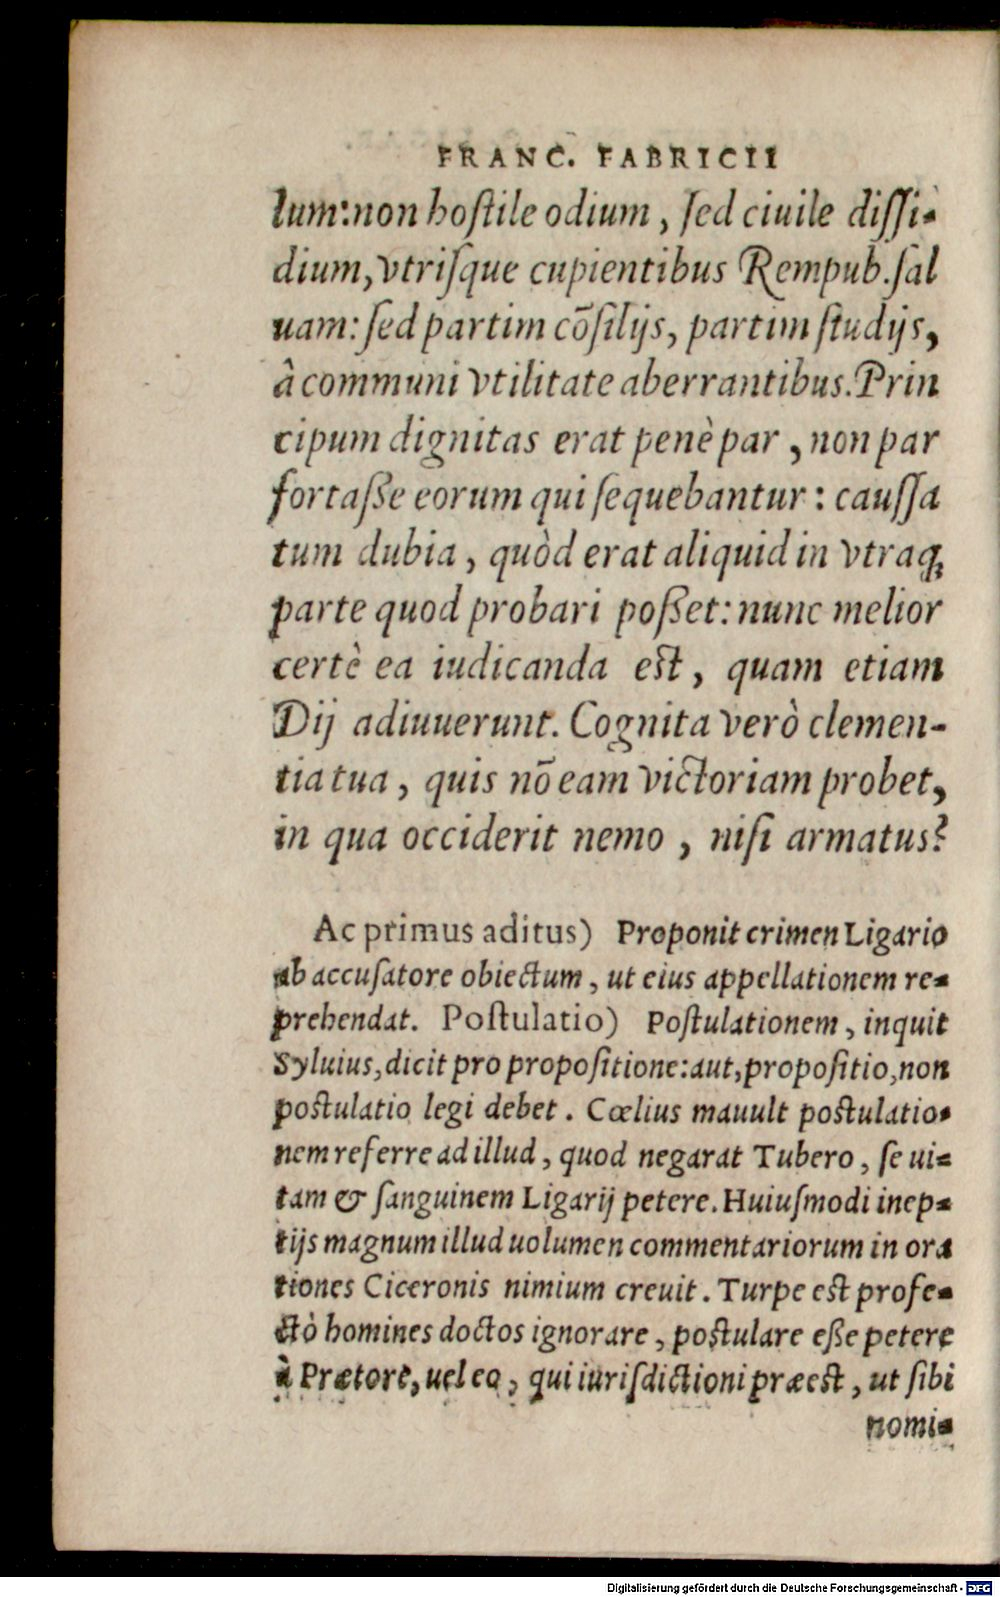 FRANC. FABRICII
lum: non hoſtile odium, ſed ciuile diſſi-
dium, vtriſque cupientibus Rempub. ſal
uam: ſed partim cōſilijs, partim ſtudijs,
à communi vtilitate aberrantibus. Prin
cipum dignitas erat penè par, non par
fortaſſe eorum qui ſequebantur: cauſſa
tum dubia, quòd erat aliquid in vtraq;
parte quod probari poſſet: nunc melior
certè ea iudicanda eſt, quam etiam
Dij adiuuerunt. Cognita verò clemen-
tia tua, quis nō eam victoriam probet,
in qua occiderit nemo, niſi armatus?
Ac primus aditus) Proponit crimen Ligario
ab accuſatore obiectum, ut eius appellationem re-
prehendat. Poſtulatio) Poſtulationem, inquit
Syluius, dicit pro propoſitione: aut, propoſitio, non
poſtulatio legi debet. Cœlius mauult poſtulatio-
nem referre ad illud, quod negarat Tubero, ſe ui-
tam & ſanguinem Ligarij petere. Huiuſmodi inep-
tijs magnum illud uolumen commentariorum in ora
tiones Ciceronis nimium creuit. Turpe eſt profe-
ctò homines doctos ignorare, poſtulare eſſe petere
à Prætore, uel eo, qui iuriſdictioni præeſt, ut ſibi
nomi-
Digitalisierung gefördert durch die Deutsche Forschungsgemeinschaft - DFG